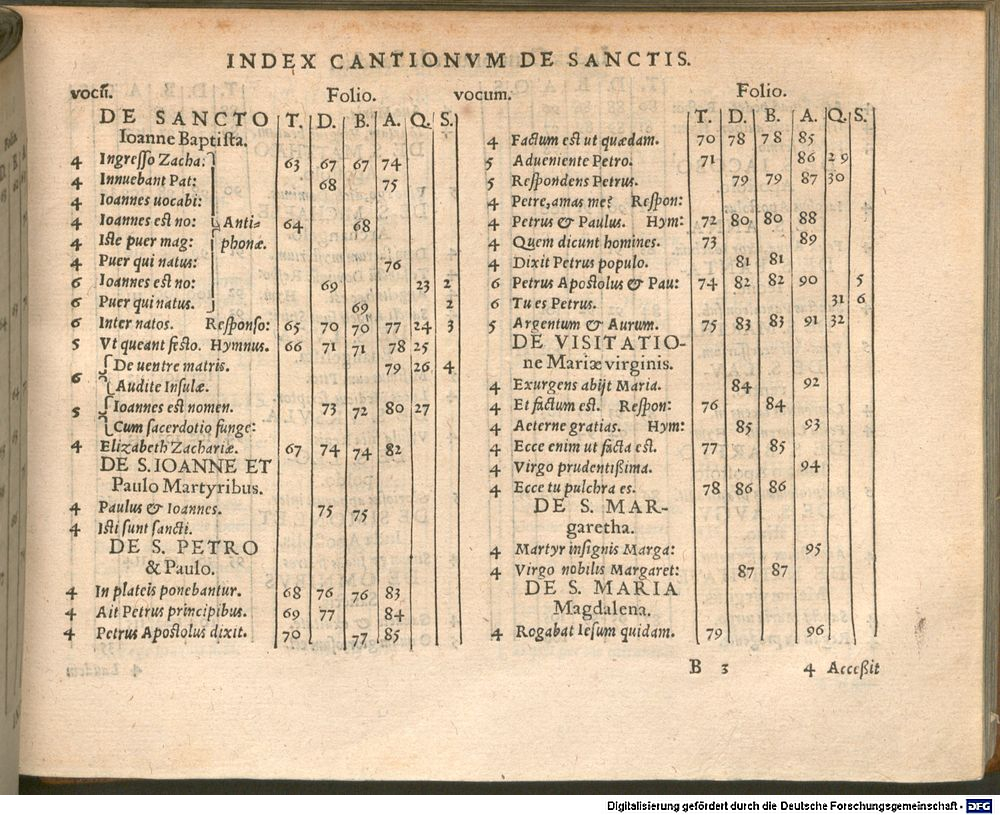 INDEX CANTIONVM DE SANCTIS.
vocū. Folio.
DE SANCTO T. D. B. A. Q. S.
Ioanne Baptista.
4 Ingresso Zacha: 63 67 67 74
4 Innuebant Pat: 68 75
4 Ioannes uocabi:
4 Ioannes est no: Anti- 64 68
4 Iste puer mag: phonæ.
4 Puer qui natus: 76
6 Ioannes est no: 69 23 2
6 Puer qui natus. 69 2
6 Inter natos. Responso: 65 70 70 77 24 3
5 Vt queant festo. Hymnus. 66 71 71 78 25
6 De uentre matris. 79 26 4
Audite Insulæ.
5 Ioannes est nomen. 73 72 80 27
Cum sacerdotio funge:
4 Elizabeth Zachariæ. 67 74 74 82
DE S. IOANNE ET
Paulo Martyribus.
4 Paulus & Ioannes. 75 75
4 Isti sunt sancti.
DE S. PETRO
& Paulo.
4 In plateis ponebantur. 68 76 76 83
4 Ait Petrus principibus. 69 77 84
4 Petrus Apostolus dixit. 70 77 85
vocum. Folio.
T. D. B. A. Q. S.
4 Factum est ut quædam. 70 78 78 85
5 Adueniente Petro. 71 86 29
5 Respondens Petrus. 79 79 87 30
4 Petre, amas me? Respon:
4 Petrus & Paulus. Hym: 72 80 80 88
4 Quem dicunt homines. 73 89
4 Dixit Petrus populo. 81 81
6 Petrus Apostolus & Pau: 74 82 82 90 5
6 Tu es Petrus. 31 6
5 Argentum & Aurum. 75 83 83 91 32
DE VISITATIO-
ne Mariæ virginis.
4 Exurgens abijt Maria. 84 92
4 Et factum est. Respon: 76 84
4 Aeterne gratias. Hym: 85 93
4 Ecce enim ut facta est. 77 85
4 Virgo prudentißima. 94
4 Ecce tu pulchra es. 78 86 86
DE S. MAR-
garetha.
4 Martyr insignis Marga: 95
4 Virgo nobilis Margaret: 87 87
DE S. MARIA
Magdalena.
4 Rogabat Iesum quidam. 79 96
B 3 4 Acceßit
Digitalisierung gefördert durch die Deutsche Forschungsgemeinschaft - DFG